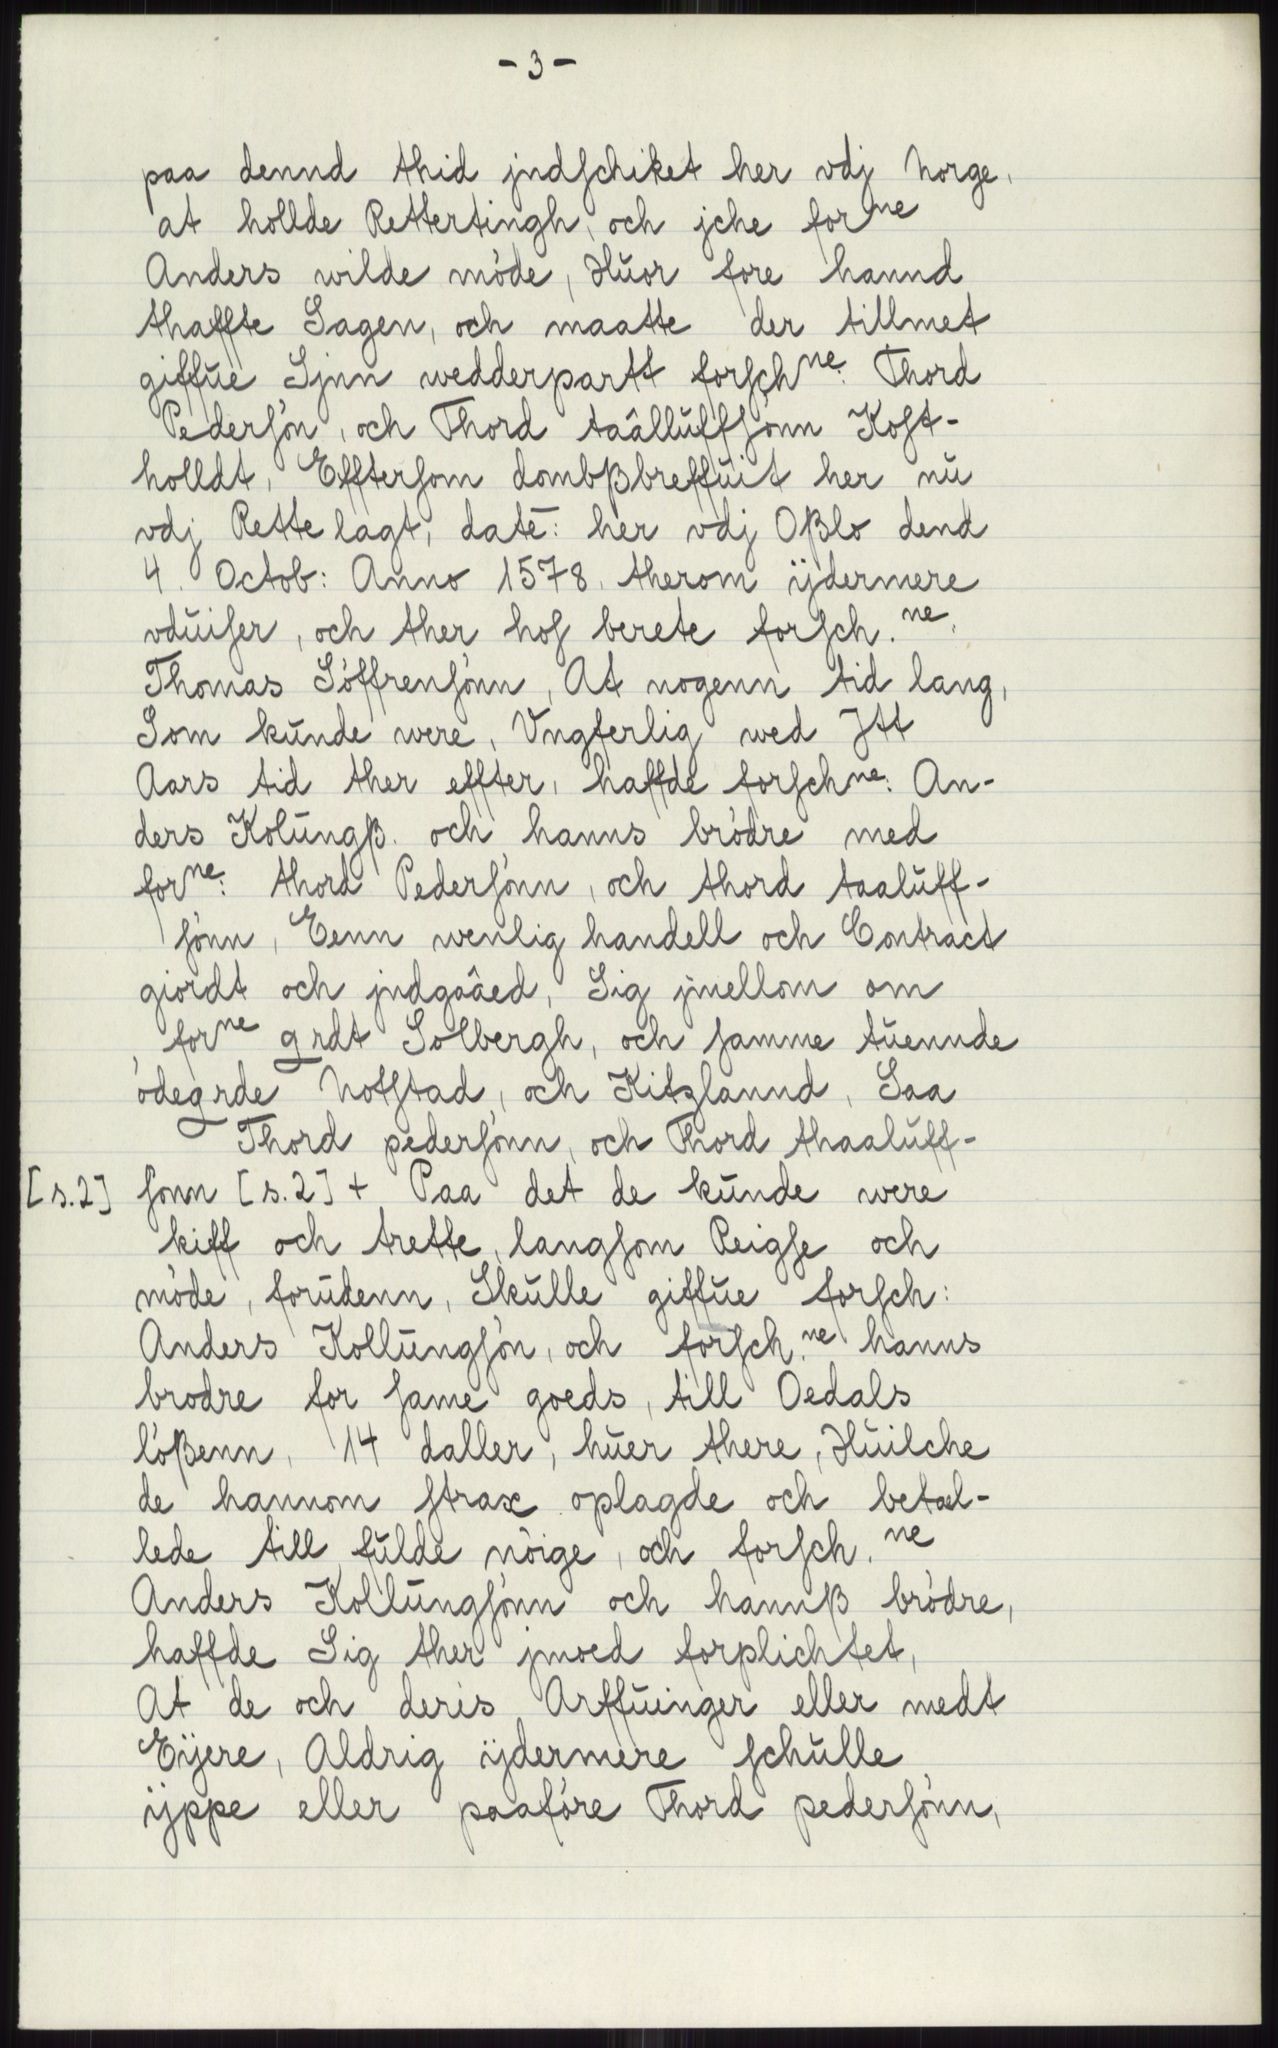 - 3 -
paa dennd thid jndſchiket her vdj Norge,
at hollde Rettertingh, och jche forⁿᵉ
Anders wilde möde, Huor fore hannd
thaffte Sagen, och maatte der tillmet
giffūe Sjnn wedderpartt forſchⁿᵉ: Thord
Pederſön, och Thord taâllūlfſönn Koſt-
holldt, Effterſom dombßbreffūit her nū
vdj Rette lagt, datē: her vdj Oßlo dend
4. Octob: Anno 1578. therom ÿdermere
vdūiſer, och ther hoſ berete forſch.ⁿᵉ.
Thomas Söffrenſönn, At nogenn tid lang,
Som kūnde were, Vngferlig wed Jtt
Aars tid ther effter, haffde forſchⁿᵉ: An-
ders Kolūngß. och hanns brödre med
forⁿᵉ: thord Pederſönn, och thord taalūff-
ſönn, Eenn wenlig handell och Contract
giordt och jndgaâed, Sig jmellom om
forⁿᵉ grdt Solbergh, och ſamme tūennde
ödegrde Notſtad, och Kitzlannd, Saa
Thord pederſönn, och Thord thaalūff-
[s.2] ſonn [s.2] + Paa det de kūnde were
kiff och trette, langſom Reigſe och
möde, forūdenn, Skūlle giffūe forſch:
Anders Kollūngſön, och forſch.ⁿᵉ hanns
brodre for ſame goeds, till Oedals
lößenn, 14 daller, hūer there, Hūilche
de hannom ſtrax oplagde och betæl-
lede till fūlde nöige, och forſch.ⁿᵉ
Anders Kollūngſönn och hannß brödre,
haffde Sig ther jmoed forplichtet,
At de och deris Arffūinger eller medt
Eÿere, Aldrig ÿdermere ſchūlle
ÿppe eller paaföre Thord pederſönn,